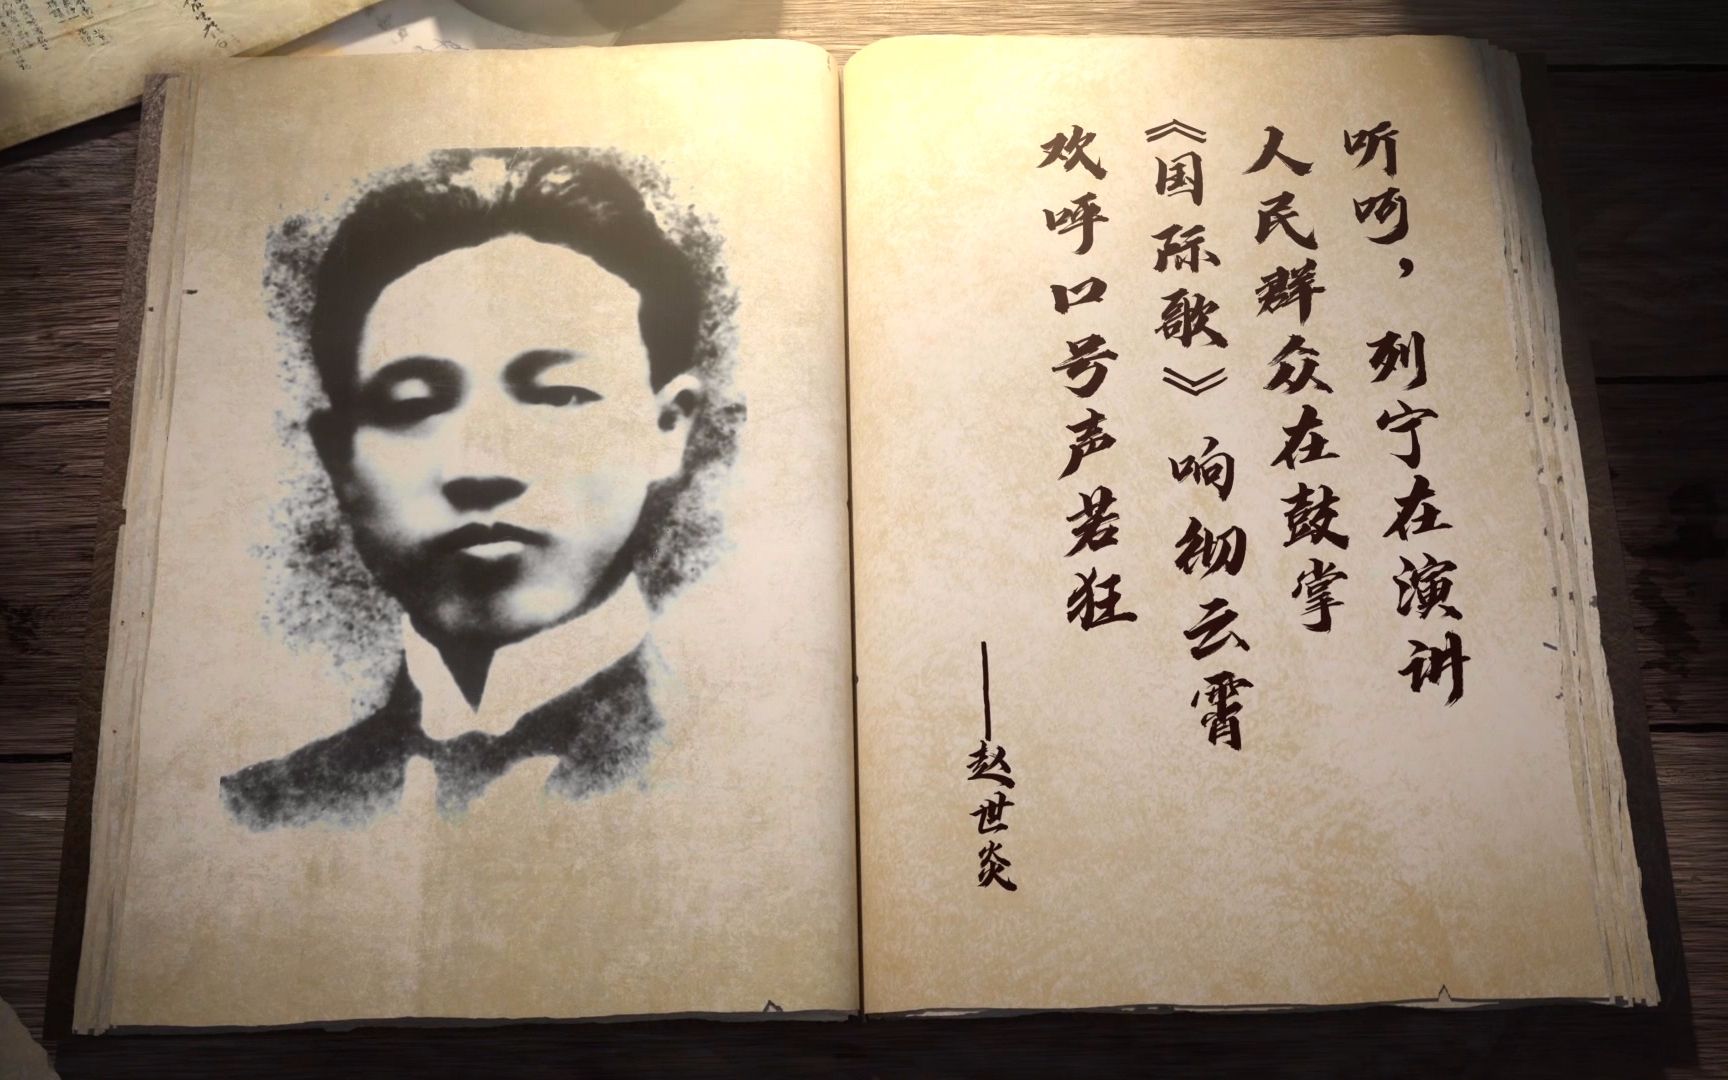 听呵，列宁在演讲
人民群众在鼓掌
《国际歌》响彻云霄
欢呼口号声若狂
——赵世炎